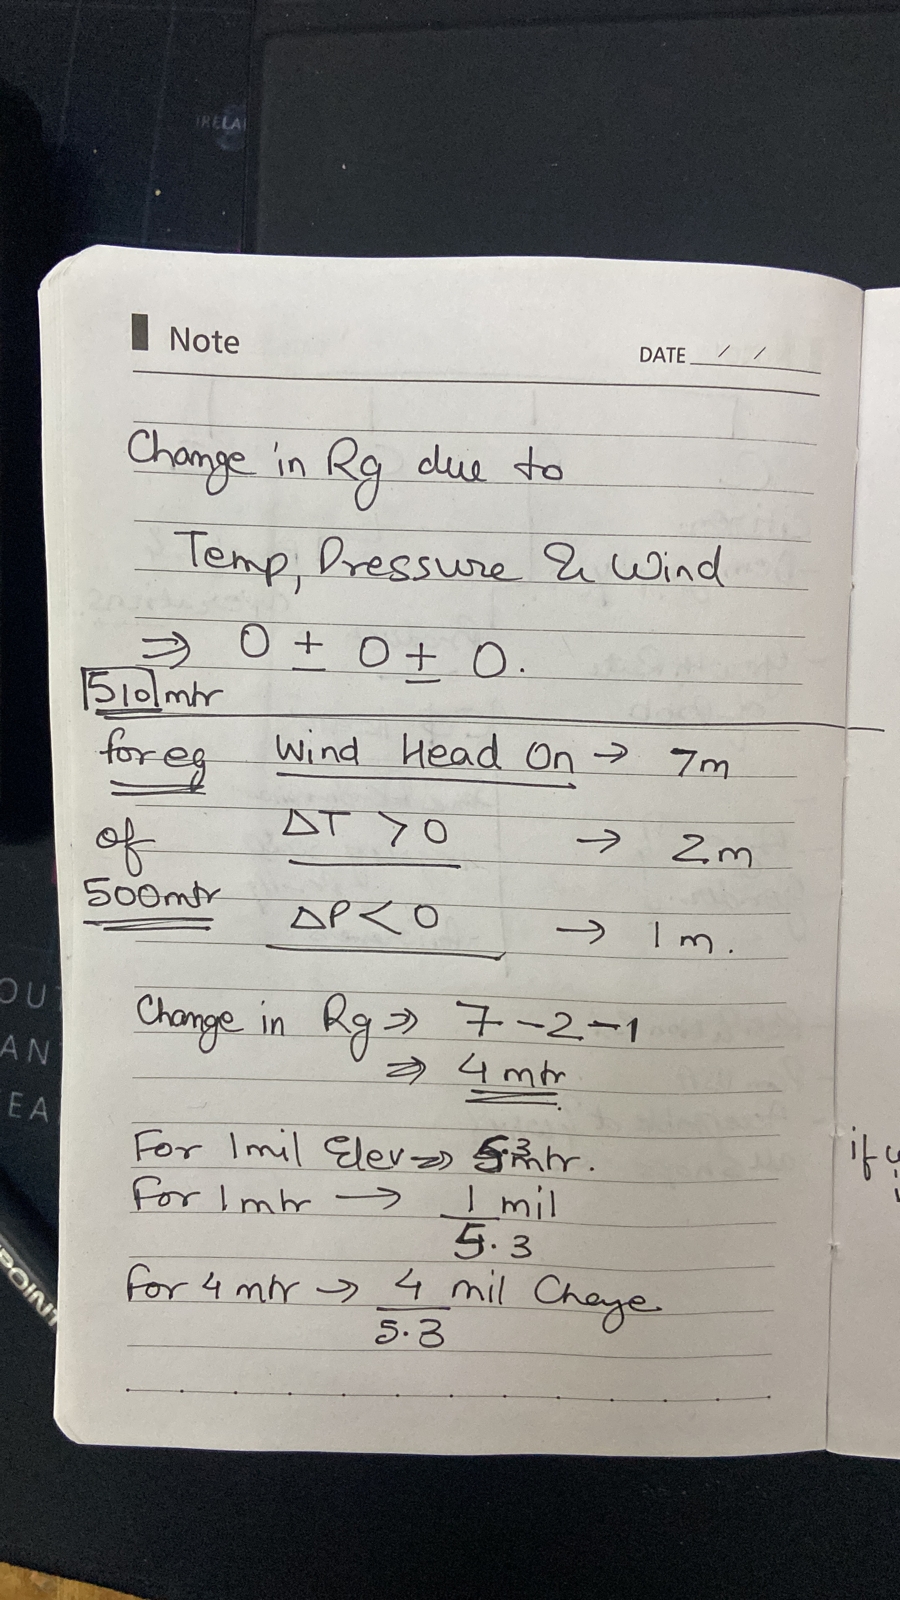 IRELA
Note
DATE / /
Change in Rg due to
Temp, Pressure & Wind
⇒ 0 ± 0 ± 0.
510 mtr
for eg Wind Head On → 7m
of ΔT > 0 → 2m
500mtr ΔP < 0 → 1m.
Change in Rg ⇒ 7-2-1
⇒ 4 mtr.
For 1mil Elev ⇒ 5.3mtr.
For 1mtr → 1/5.3 mil
For 4 mtr → 4/5.3 mil Change
OU
AN
EA
POINT
if